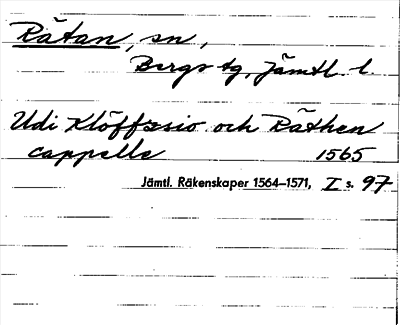 Rätan, sn,
Bergs tg, Jämtl. l.
Udi Klöffsiö och Räthen
cappelle 1565
Jämtl. Räkenskaper 1564–1571, I s. 97